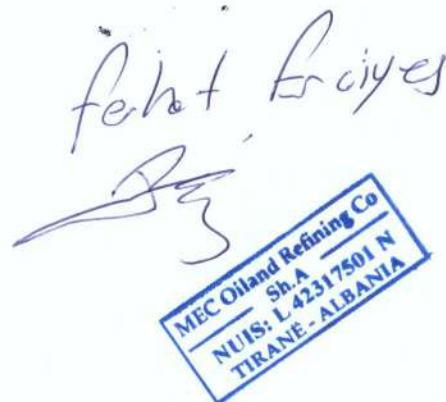 Ferhat Erciyes
MEC Oiland Refining Co
Sh.A
NUIS: L 42317501 N
TIRANË - ALBANIA